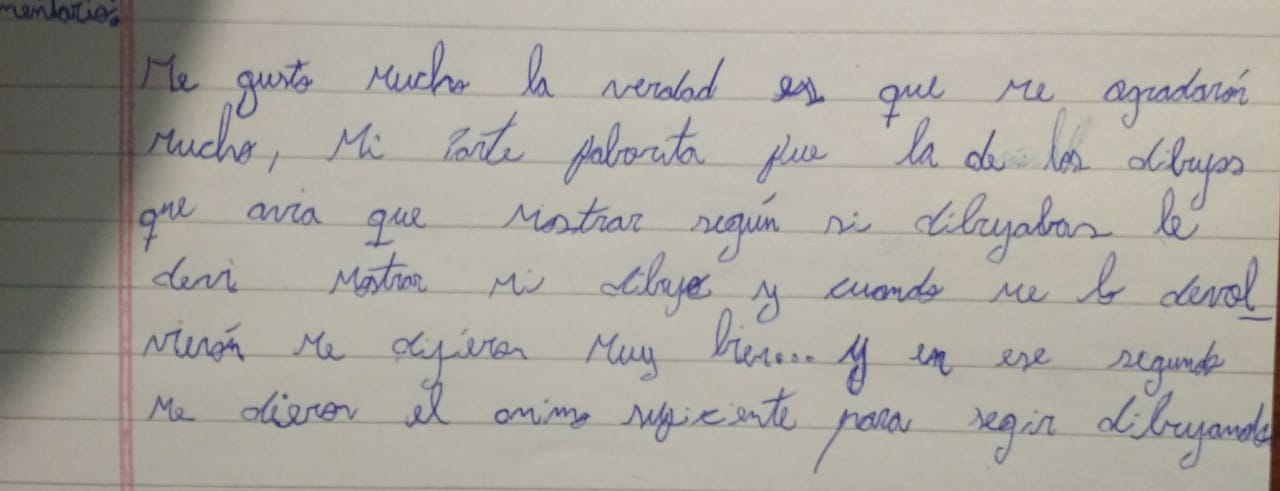 mentarios:
Me gusto mucho la verdad es que me agradarón
mucho, Mi Parte faborita fue la de los dibujos
que avia que mostrar según si dibujabas le
devi mostrar mi dibujo y cuando me lo devol
vierón me dijieron muy bien... y en ese segundo
me dieron el animo suficiente para segir dibujando